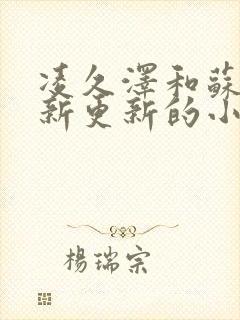 凌久澤和蘇
新更新的小
楊瑞宗